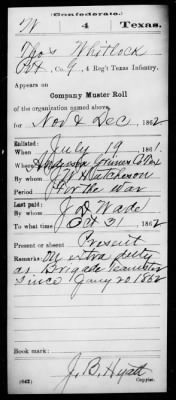 (Confederate.)
W 4 Texas.
Thos Whitlock
Pvt, Co. G, 4 Reg't Texas Infantry.
Appears on
Company Muster Roll
of the organization named above,
for Nov & Dec, 1862
Enlisted:
When July 19, 1861.
Where Anderson Grimes Co Tex
By whom J W Hutcheson
Period For the War
Last paid:
By whom J. D. Wade
To what time Oct 31, 1862
Present or absent Present
Remarks: On extra duty
as Brigade Teamster
since Jany 20 1862
Book mark:
(642) J. B. Hyatt
Copyist.